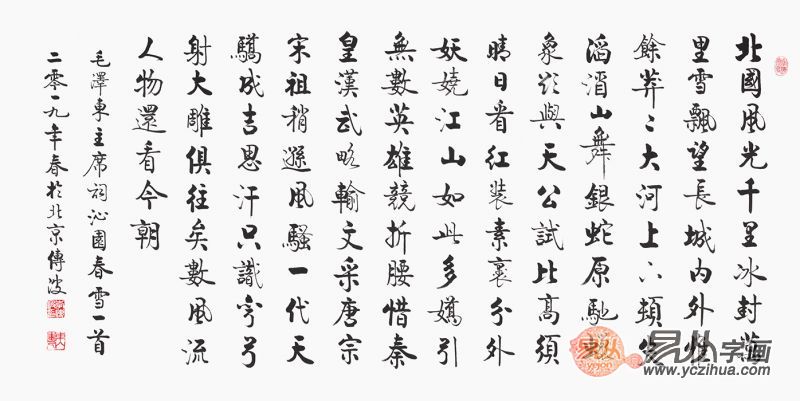 北國風光千里冰封萬
里雪飄望長城内外惟
餘莽〻大河上下頓失
滔滔山舞銀蛇原馳
象欲與天公試比高須
晴日看紅裝素裹分外
妖嬈江山如此多嬌引
無數英雄競折腰惜秦
皇漢武略輸文采唐宗
宋祖稍遜風騷一代天
驕成吉思汗只識彎弓
射大雕俱往矣數風流
人物還看今朝
毛澤東主席詞沁園春雪一首
二零一九年春於北京傳波
易从字画
www.yczihua.com